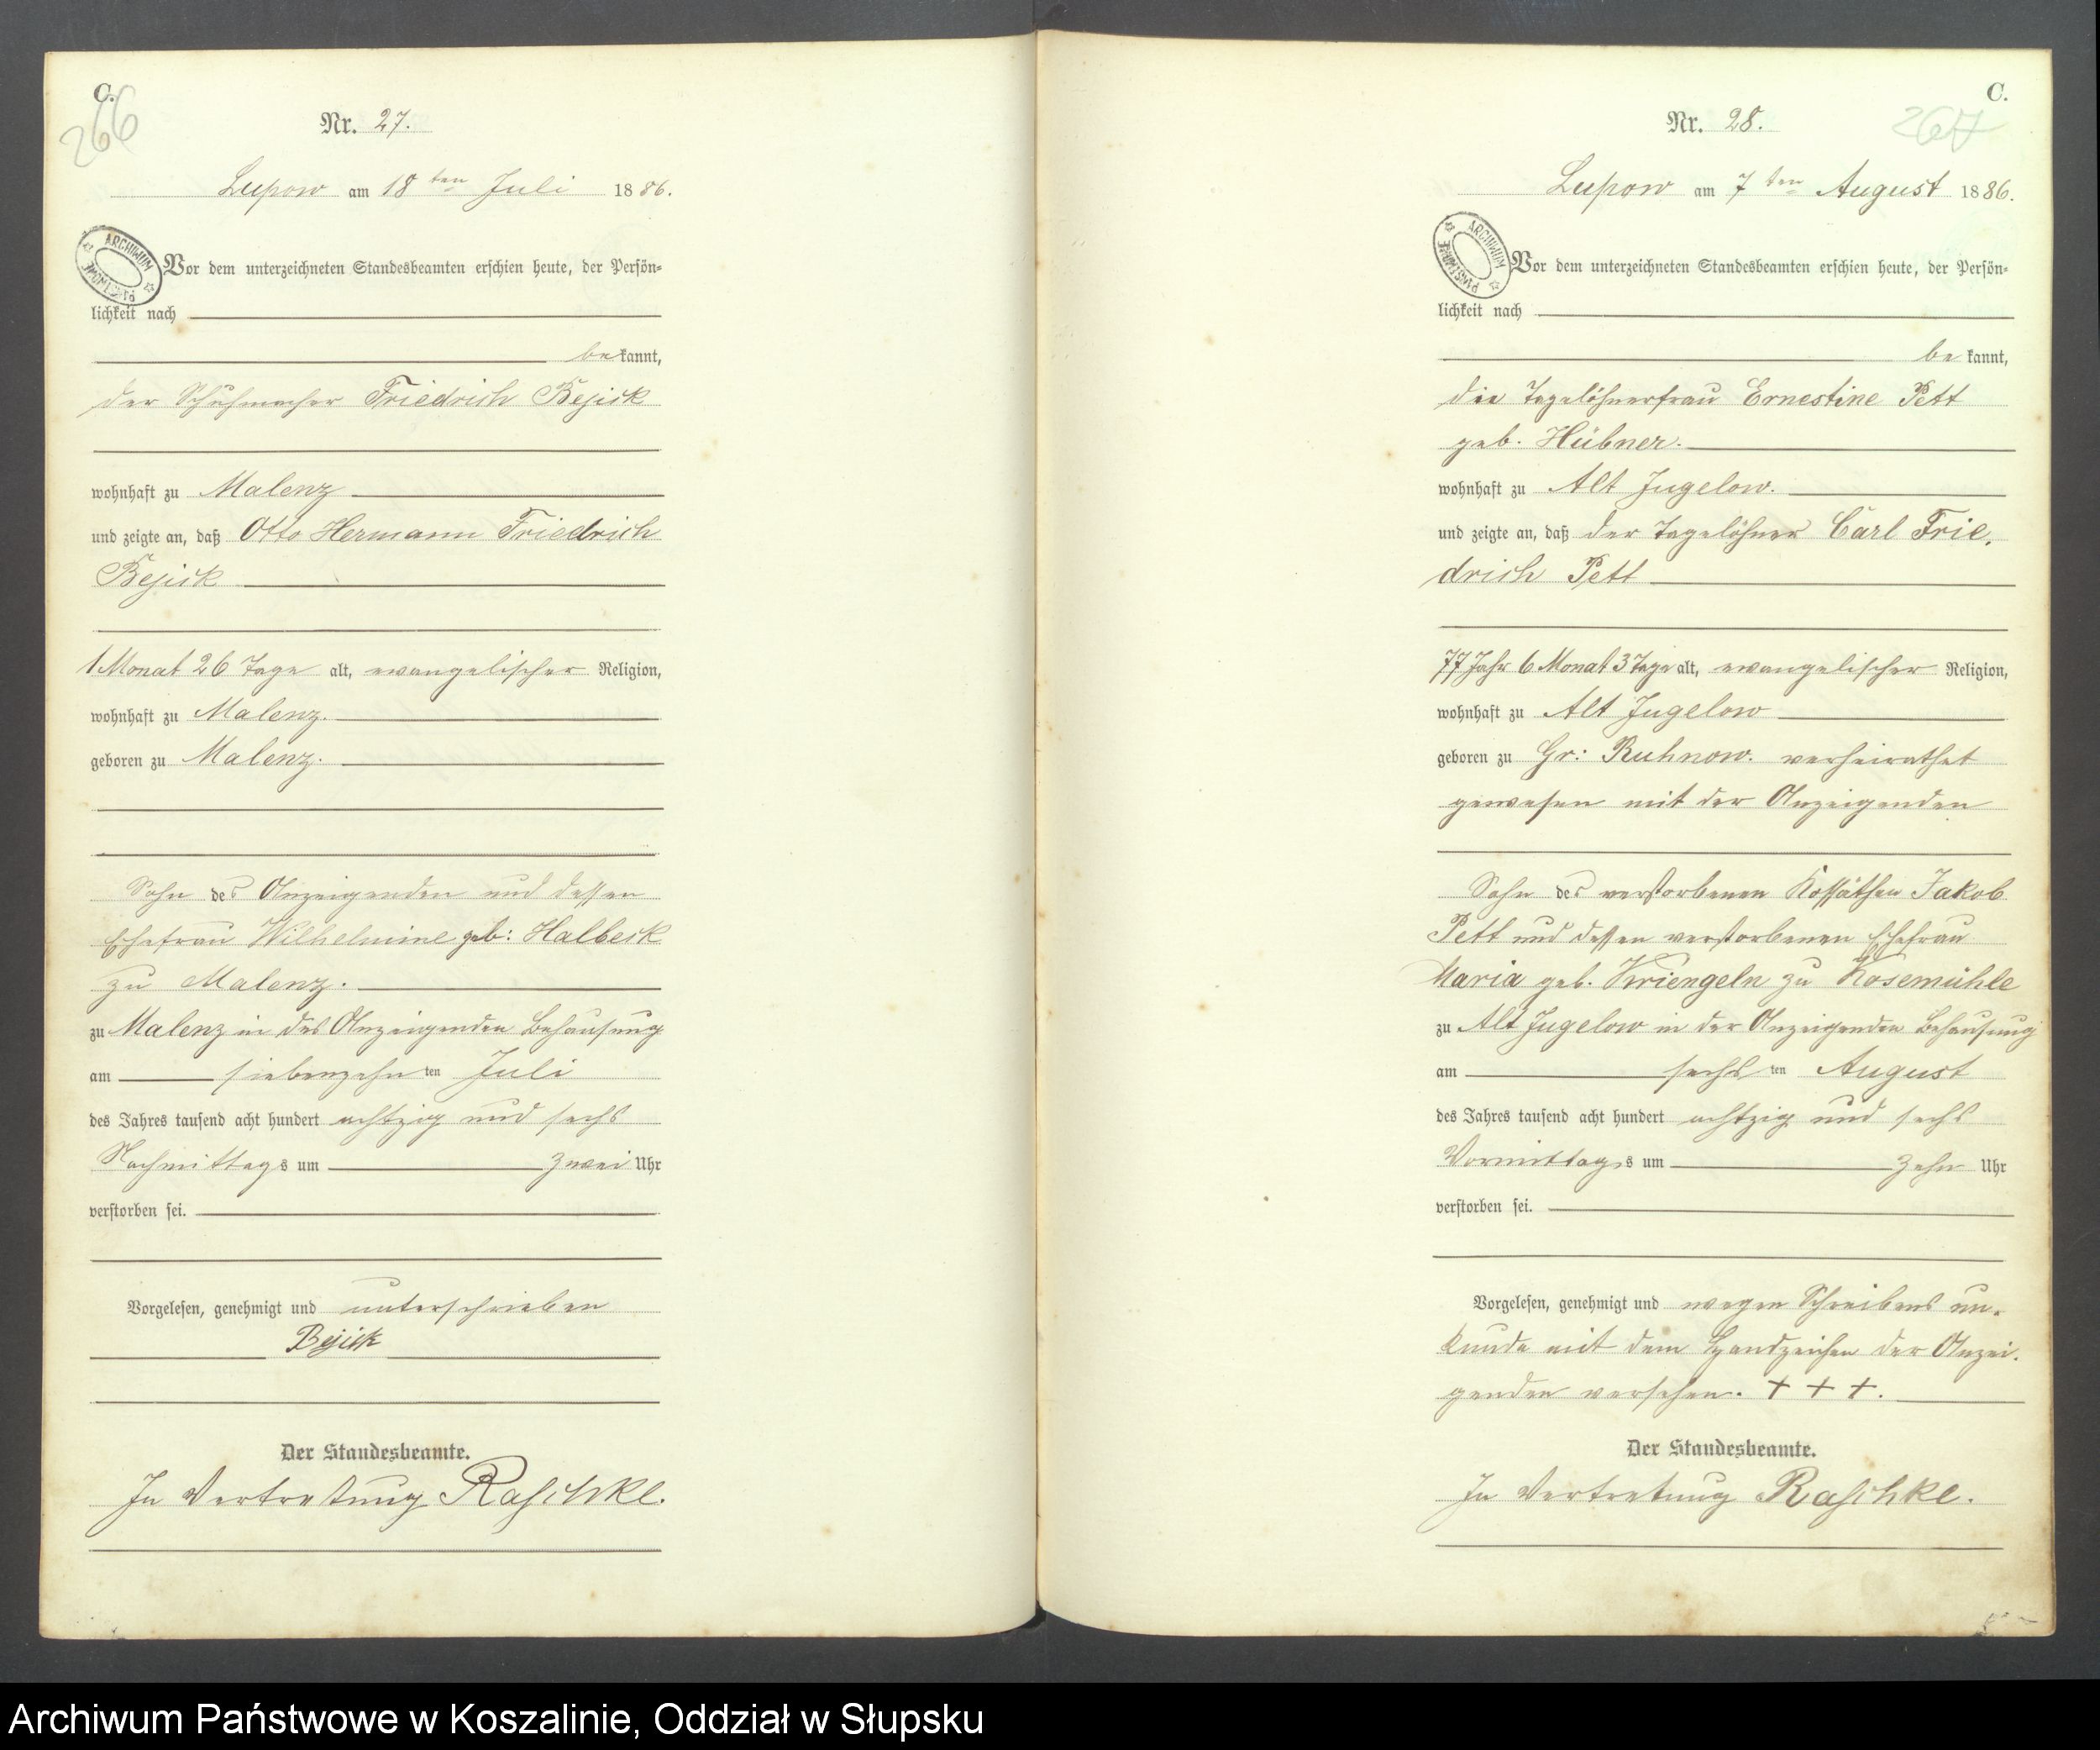 C.
266
Nr. 27.
Lupow am 18 ten Juli 1886.
ARCHIWUM PAŃSTWOWE
Vor dem unterzeichneten Standesbeamten erschien heute, der Persön-
lichkeit nach
bekannt,
der Schuhmacher Friedrich Bejick
wohnhaft zu Malenz
und zeigte an, daß Otto Hermann Friedrich
Bejick
1 Monat 26 Tage alt, evangelischer Religion,
wohnhaft zu Malenz.
geboren zu Malenz.
Sohn des Anzeigenden und dessen
Ehefrau Wilhelmine geb: Halbeck
zu Malenz.
zu Malenz in des Anzeigenden Behausung
am siebenzehn ten Juli
des Jahres tausend acht hundert achtzig und sechs
Nachmittags um zwei Uhr
verstorben sei.
Vorgelesen, genehmigt und unterschrieben
Bejick
Der Standesbeamte.
In Vertretung Raschke.
C.
267
Nr. 28.
Lupow am 7 ten August 1886.
ARCHIWUM PAŃSTWOWE
Vor dem unterzeichneten Standesbeamten erschien heute, der Persön-
lichkeit nach
be kannt,
die Tagelöhnerfrau Ernestine Pett
geb. Hübner.
wohnhaft zu Alt Jugelow.
und zeigte an, daß der Tagelöhner Carl Frie-
drich Pett
77 Jahr 6 Monat 3 Tage alt, evangelischer Religion,
wohnhaft zu Alt Jugelow
geboren zu Gr: Ruhnow. verheirathet
gewesen mit der Anzeigenden
Sohn des verstorbenen Kossäthen Jakob
Pett und dessen verstorbenen Ehefrau
Maria geb. Kriengeln zu Kosemühle
zu Alt Jugelow in der Anzeigenden Behausung
am sechs ten August
des Jahres tausend acht hundert achtzig und sechs
Vormittags um zehn Uhr
verstorben sei.
Vorgelesen, genehmigt und wegen Schreibens un-
kunde mit dem Handzeichen der Anzei-
genden versehen. + + +.
Der Standesbeamte.
In Vertretung Raschke.
Archiwum Państwowe w Koszalinie, Oddział w Słupsku